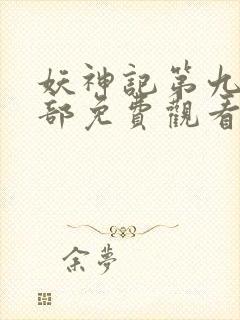 妖神記第九
部免費觀看
余夢